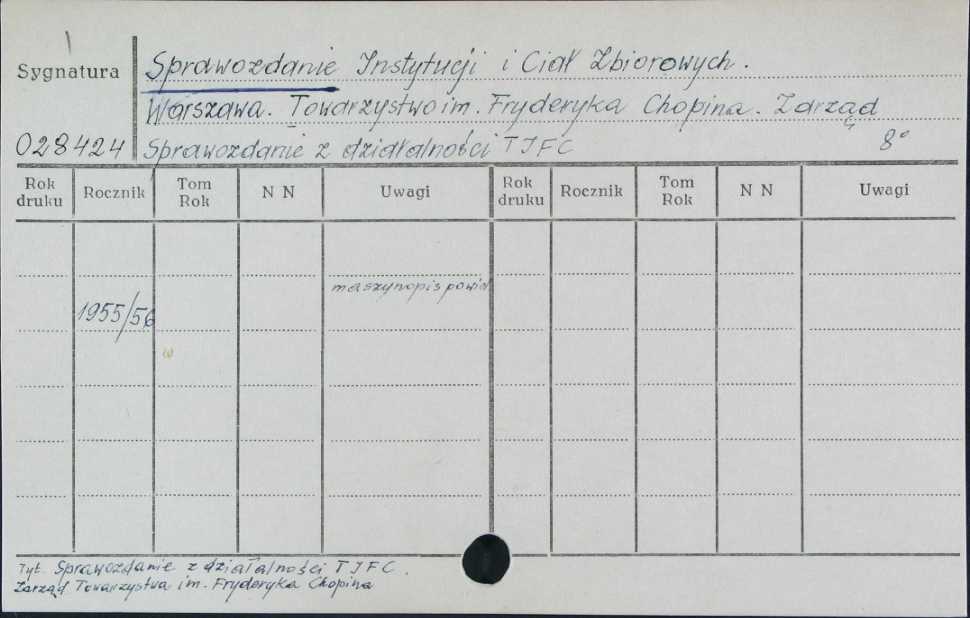 Sygnatura
Sprawozdanie Instytucji i Ciał Zbiorowych.
Warszawa. Towarzystwo im. Fryderyka Chopina. Zarząd
028424 Sprawozdanie z działalności TIFC 8°
Rok druku Rocznik Tom Rok N N Uwagi Rok druku Rocznik Tom Rok N N Uwagi
maszynopis powiel
1955/56
w
Tyt. Sprawozdanie z działalności TIFC.
Zarząd Towarzystwa im. Fryderyka Chopina